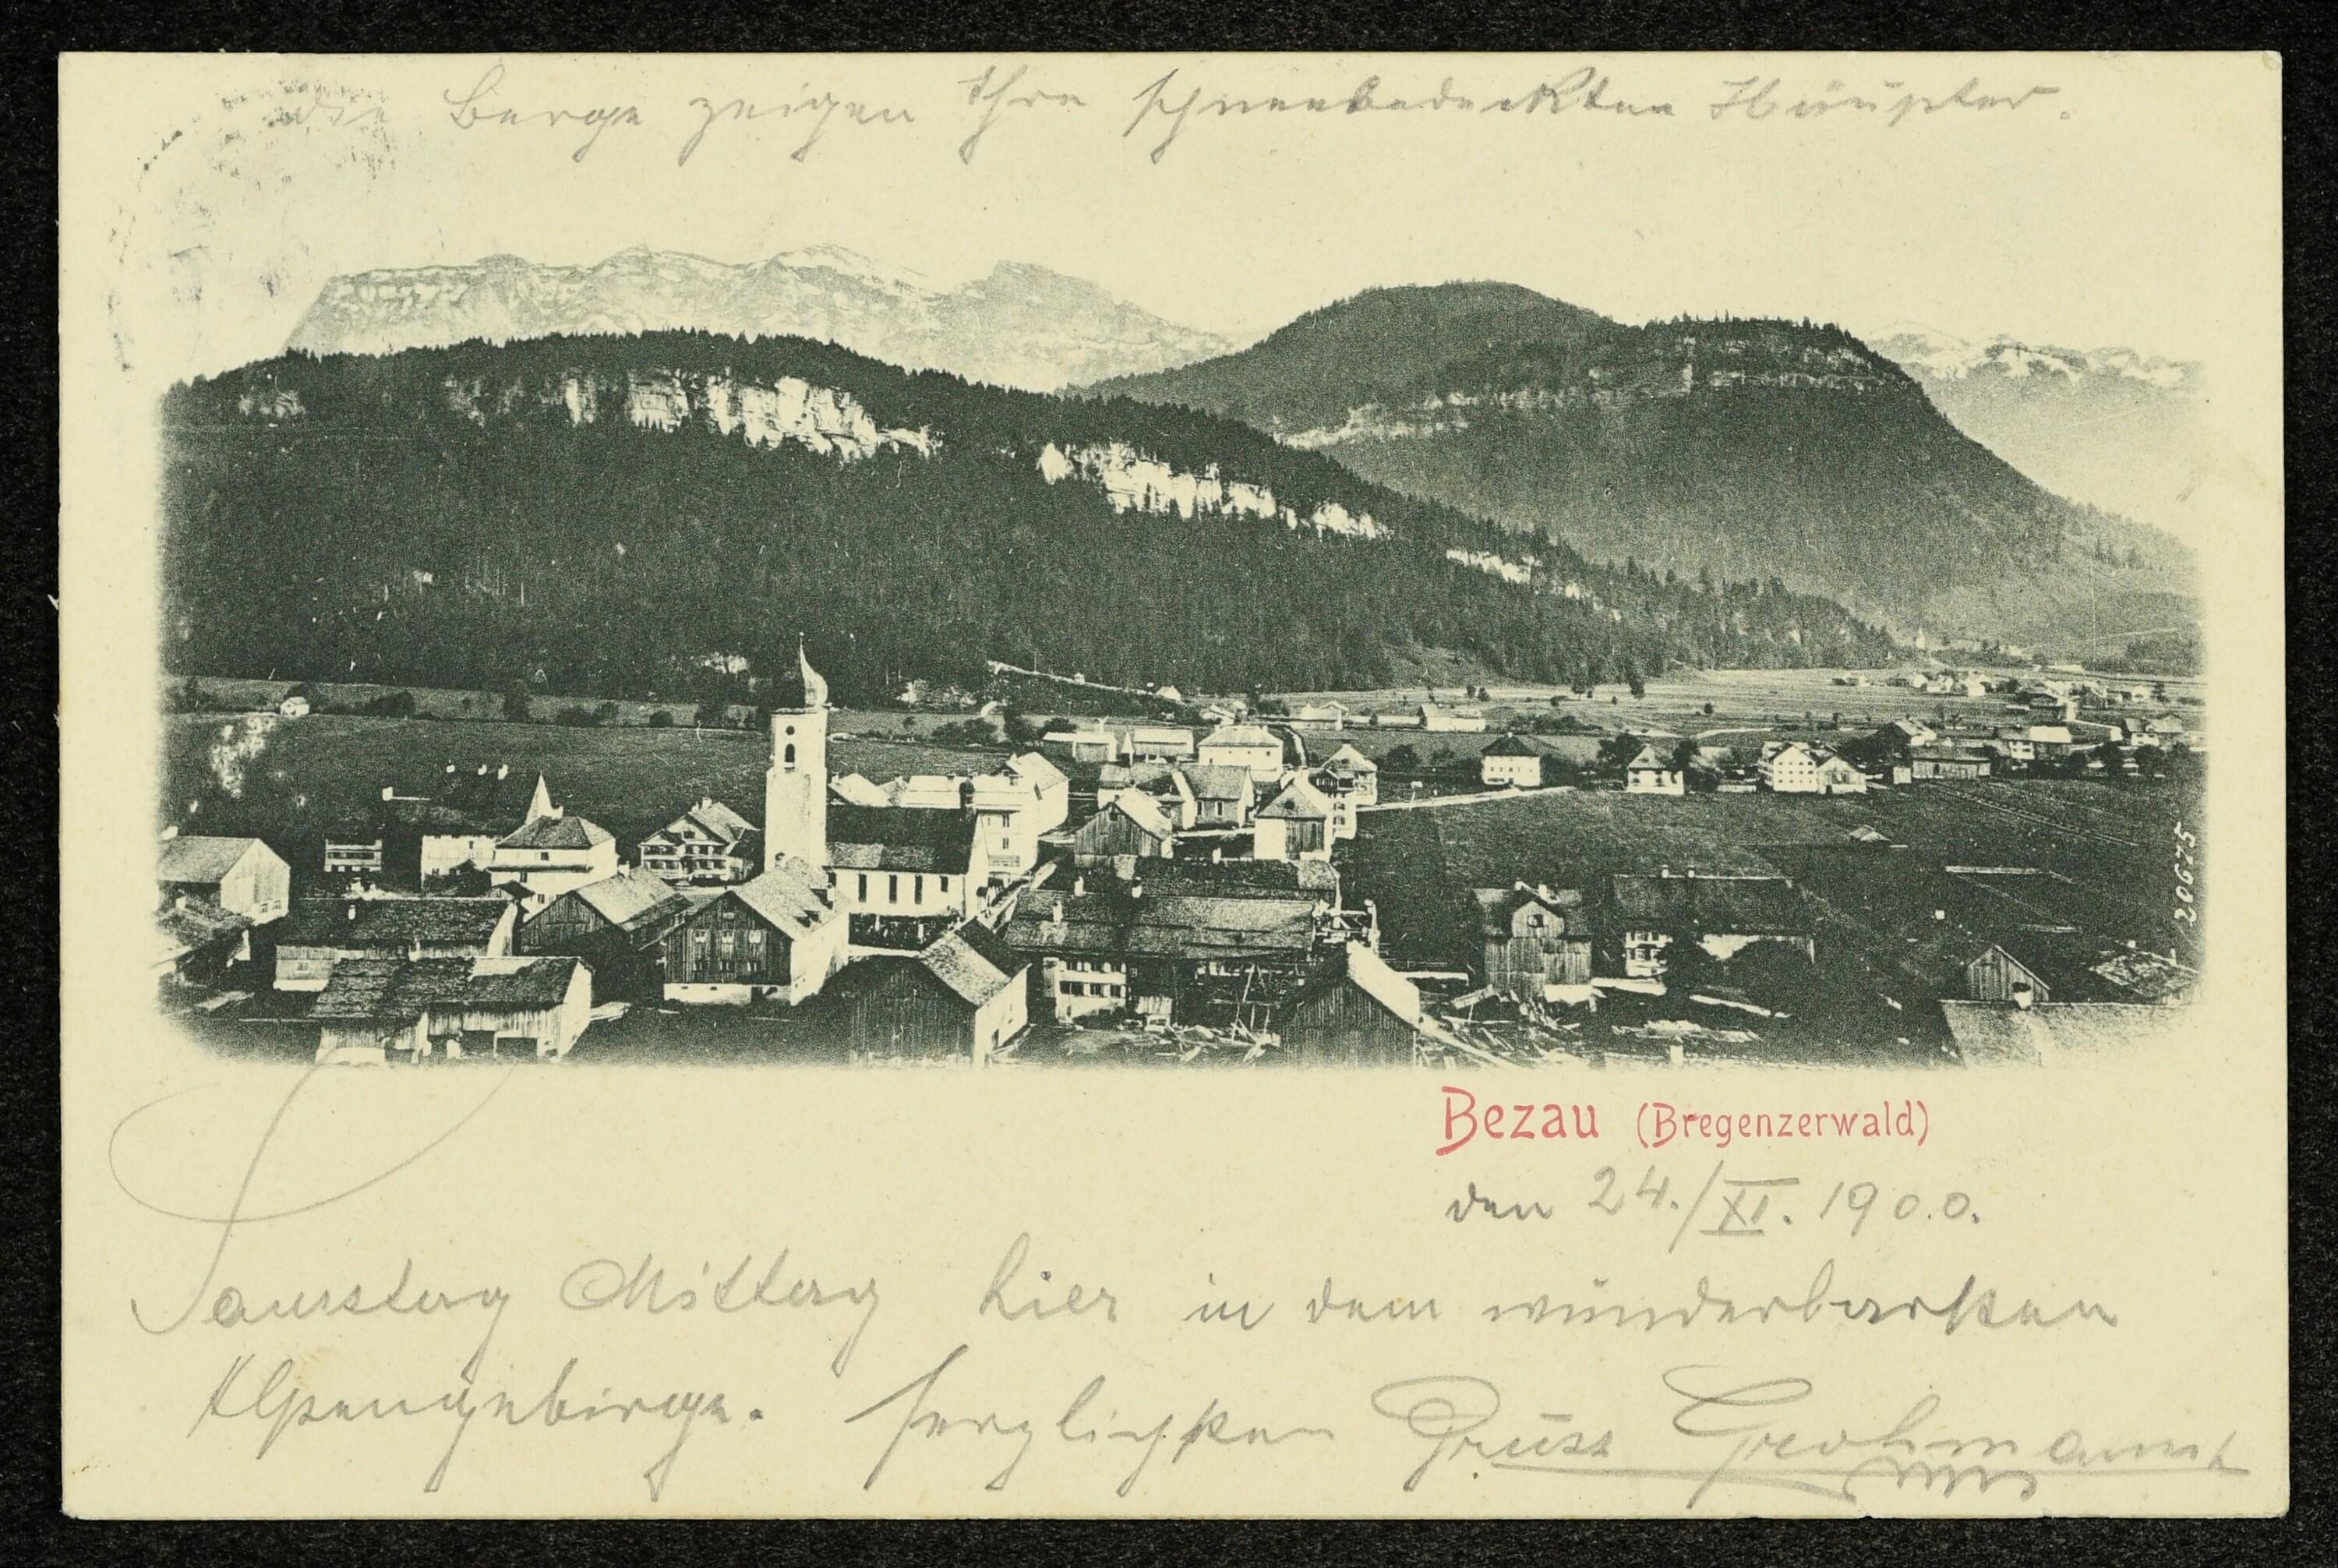 die Berge zeigen Ihre schneebedeckten Häupter.
20675
Bezau (Bregenzerwald)
den 24./XI. 1900.
Samstag Mittag hier in dem wunderbarsten
Alpengebirge. herzlichsten Gruss Grohmann